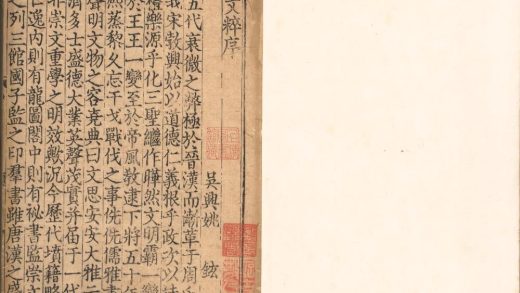 文粹序
吳興姚鉉
五代衰微之弊極於晉漢而漸革于周氏
我宋勃興始以道德仁義根乎政次以
禮樂源乎化三聖繼作曄然文明霸一變
於王王一變至於帝風敎逮下將五十年
熙蒸黎久忘干戈戰伐之事侁侁儒雅
聲明文物之容堯典曰文思安安大雅云
濟多士盛德大業英聲茂實并届于一代
非崇文重學之明效歟況今歷代墳籍略
亡逸内則有龍圖閣中則有秘書監崇文
之列三館國子監之印羣書雖唐漢之盛